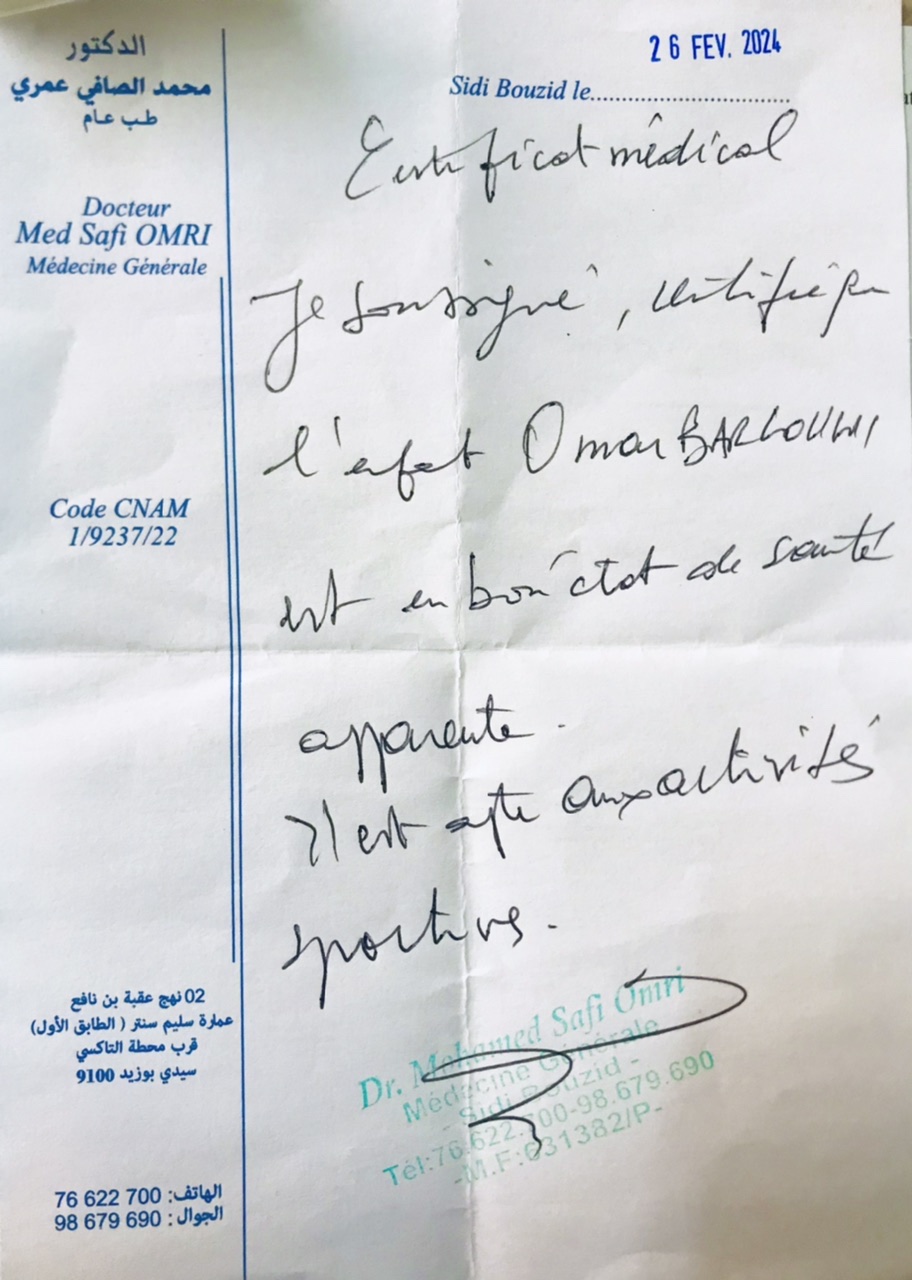 الدكتور
محمد الصافي عمري
طب عام
Docteur
Med Safi OMRI
Médecine Générale
Code CNAM
1/9237/22
02 نهج عقبة بن نافع
عمارة سليم سنتر ( الطابق الأول)
قرب محطة التاكسي
سيدي بوزيد 9100
الهاتف: 76 622 700
الجوال : 98 679 690
26 FEV. 2024
Sidi Bouzid le
Certificat médical
Je soussigné, certifie
l'enfant Omar
est en bon état de santé
apparente.
Il est apte aux activités
sportives.
Dr. Mohamed Safi Omri
Médecine Générale
- Sidi Bouzid -
Tél:76.622.700-98.679.690
-M.F:631382/P-